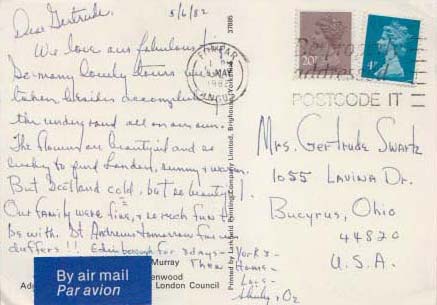 5/6/82
Dear Gertrude,
We love our fabulous
So many lovely tours
taken besides
the underground all on our own.
The flowers are beautiful and so
lucky to find London, sunny & warm.
But Scotland cold, but so beauty!
Our family were fine, & so much fun to
be with. St Andrews tomorrow for
duffers!! Edinborough for 3 days – York &
Then Home –
Love –
Shirley, & Oz
Murray
enwood
London Council
By air mail
Par avion
37885
Printed by Larkfield Printing Company Limited, Brighouse, Yorkshire
FORFAR
MAY
1982
ANGUS
20P
4P
Be properly
addressed
POSTCODE IT
Mrs. Gertrude Swartz
1055 LaVina Dr.
Bucyrus, Ohio
44820
U.S.A.